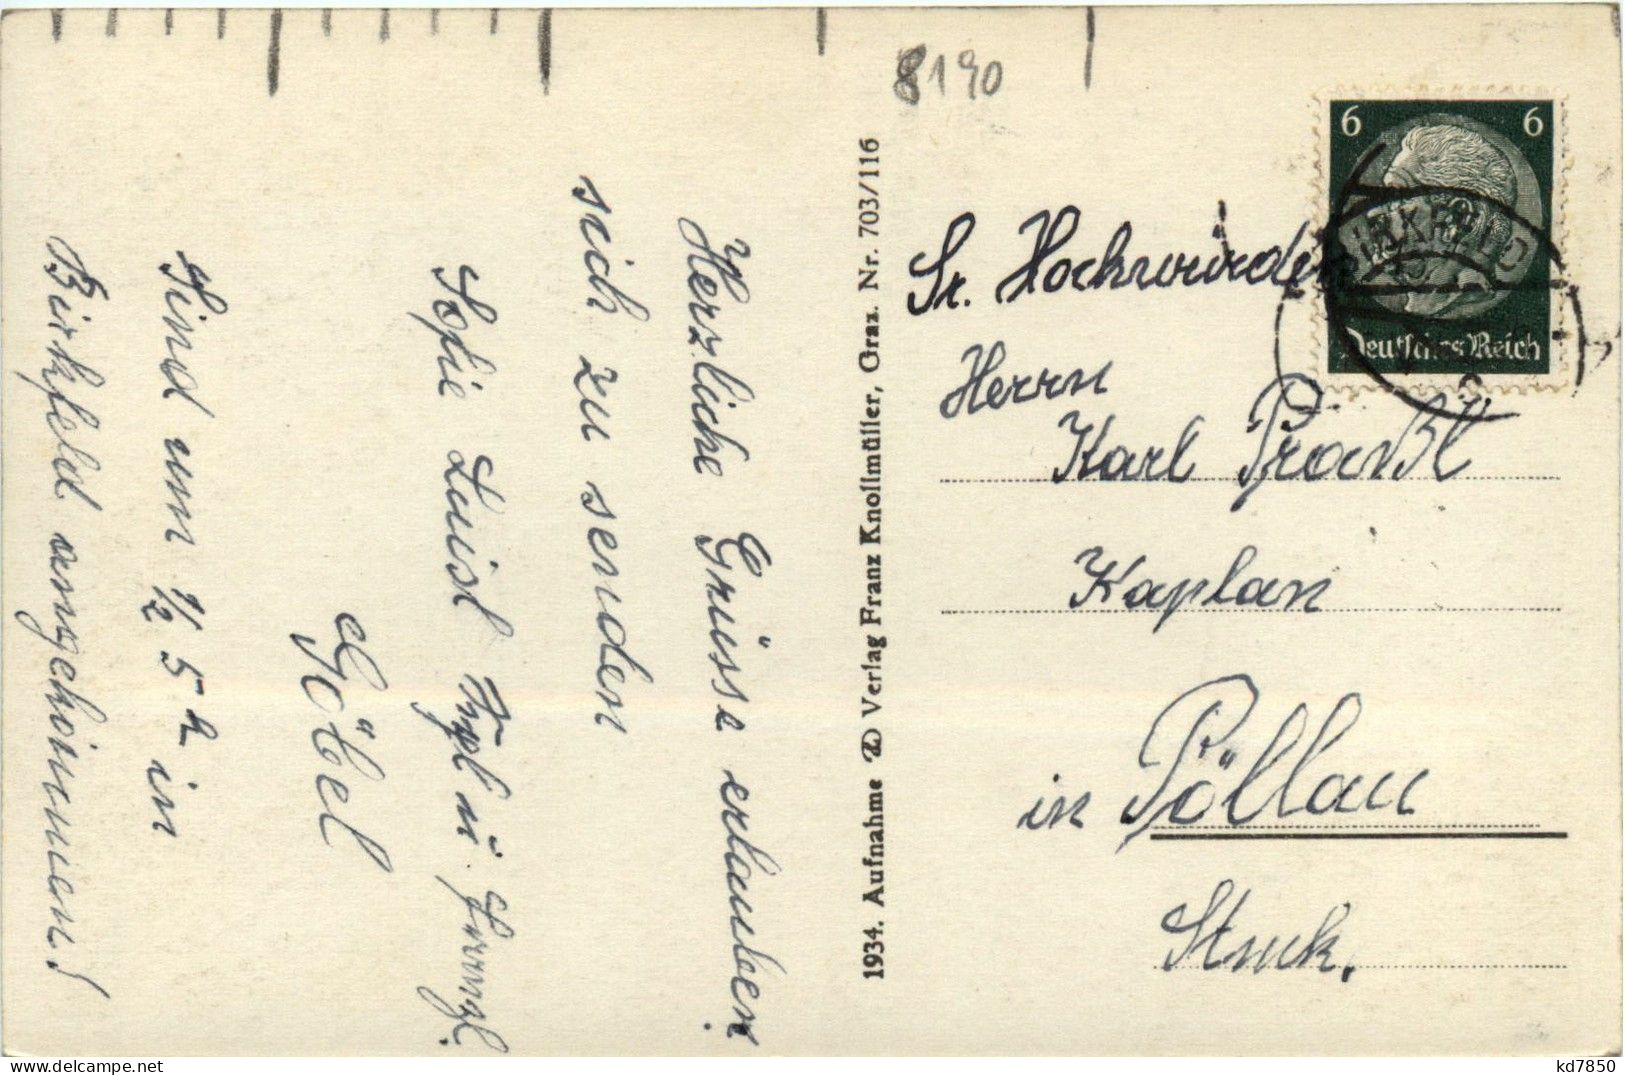 8190
Herzliche Grüsse erlauben
sich zu senden
Sofie Luisl u. Franzl.
Göbel
Sind um ½ 5 h in
Birkfeld angekommen!
1934. Aufnahme Verlag Franz Knollmüller, Graz. Nr. 703/116
6 6
BIRKFELD
Deutsches Reich
Sr. Hochwürden
Herrn
Karl
Kaplan
in Pöllau
kd7850